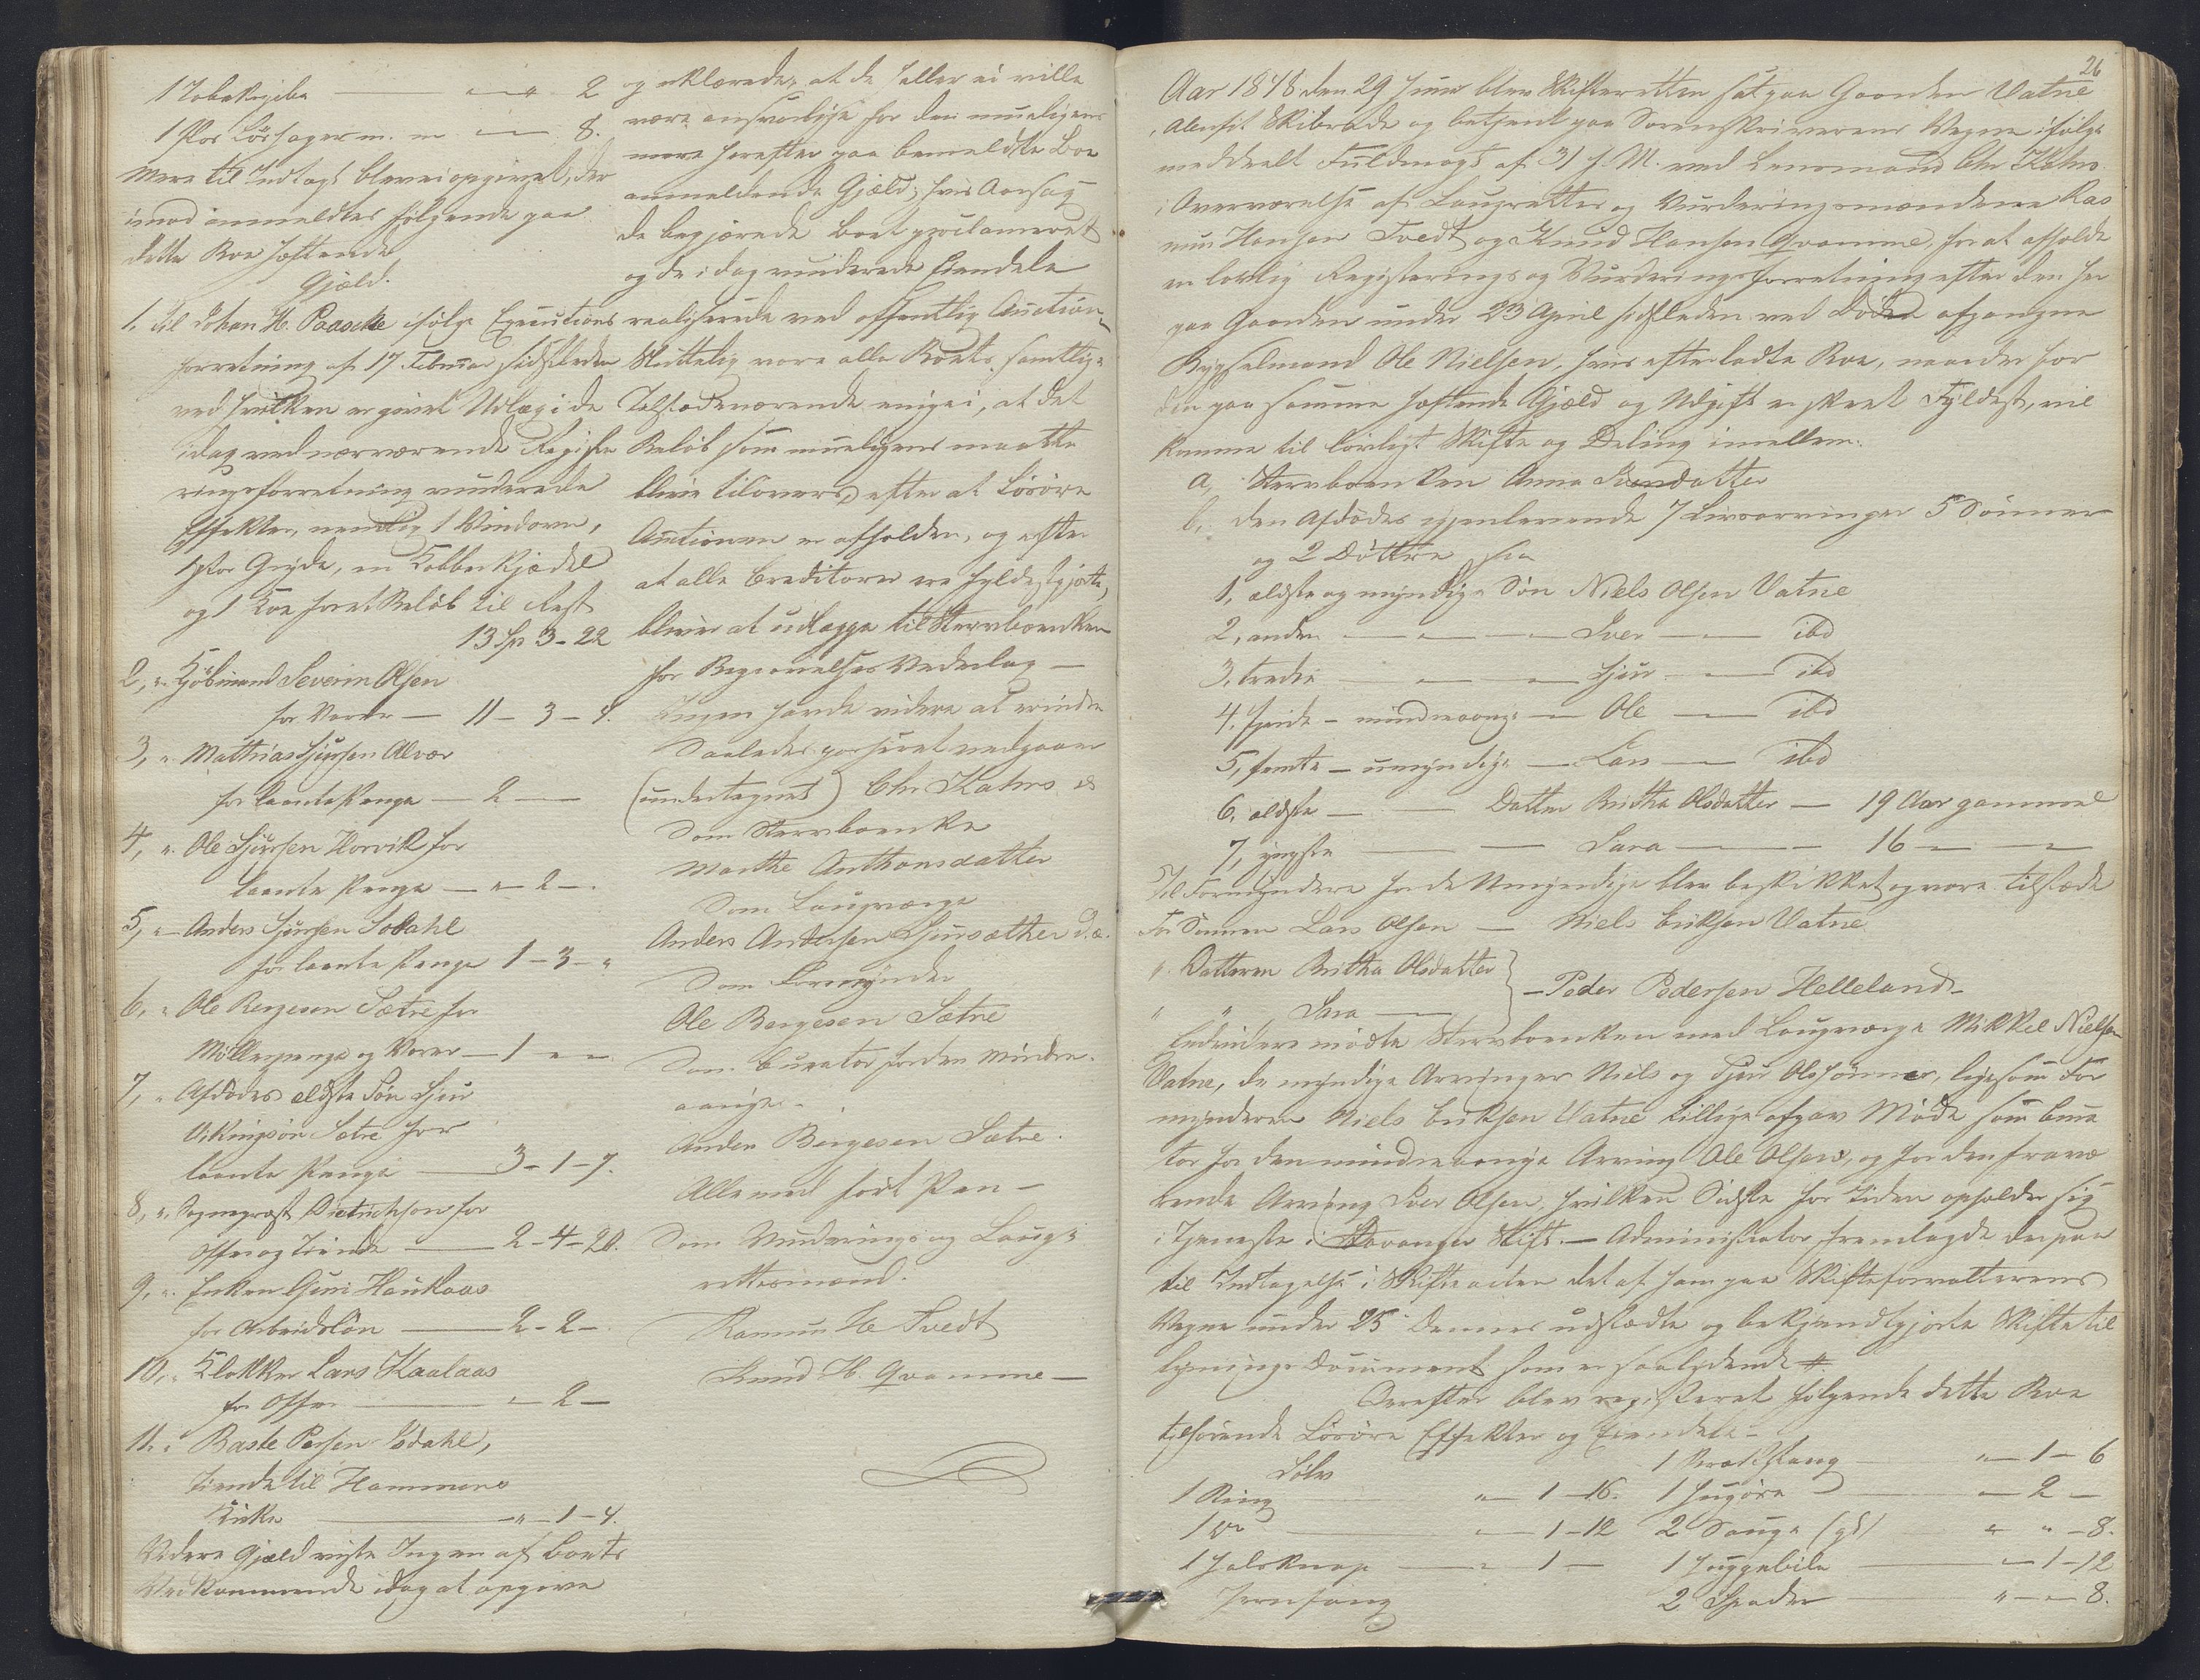 1 Tobakspibe — " — " — 2
1 Par Løssager m. m. — " — 8.
Mere til Indtægt blev ei opgivet, der
imod anmeldtes følgende paa
dette Boe hæftende
Gjæld.
1, til Johan H. Paaske ifølge Executions
forretning af 17 Februar sidstleden
ved hvilken er givet Udlæg i de
idag ved nærværende Registe
ringsforretning vurderede
Effekter, nemlig 1 Vindovn,
1 stor Gryde, en Kobberkjædel
og 1 Koe for et Beløb til Rest
13 Sp 3 - 22
2, " Kjøbmand Severin Olsen
for Varer — 11 - 3 - 4.
3, " Mathias Sjursen Alvær
for laante Penge — 2 —
4, " Ole Sjursen Horvik for
laante Penge — " — 2 — .
5, " Anders Sjursen Isdahl
for laante Penge 1 - 3 - "
6, " Ole Børgesen Sætre for
Møllepenge og Varer — 1 - " - "
7, " Afdødes ældste Søn Sjur
Vikingsøn Sætre for
laante Penge — 3 - 1 - 7.
8, " Sognepræst Dietrichson for
Offer og Tiende — 2 - 4 - 20.
9, " Enken Guri Haukaas
for Arbeidsløn — 2 - 2 -
10, " Klokker Lars Kaalaas
for Offer — " - 2 -
11, " Baste Persen Isdahl,
tiende til Hammers
Kirke — " - 1 - 4.
Videre Gjæld vidste Ingen af Boets
Vedkommende idag at opgive
og erklærede, at de heller ei ville
være ansvarlige for den mueligens
mere herefter paa bemeldte Boe
anmeldende Gjæld; hvis Aarsag
de begjærede Boet proclameret
og de i dag vurderede Eiendele
realiserede ved offentlig Auction,
Sluttelig vare alle Boets samtlige
Tilstedeværende enige i, at det
Beløb som mueligens maatte
blive tilovers, efter at Løsøre
Auctionen er afholden, og efter
at alle Creditorer ere fyldestgjorte,
bliver at udlægge til Stervboenken
for Begravelses Vederlag —
Ingen havde videre at erindre
Saaledes passeret vedgaaer
(undertegnet) Chr Kahrs
Som Sterboenke
Marthe Anthonsdatter
Som Laugværge
Anders Andersen Sjursæther d. æ.
Som Formynder
Ole Børgesen Sætre
Som Curator for den Mindre-
aarige
Anders Børgesen Sætre.
Alle med ført Pen —
Som Vurderings og Laug-
rettesmænd.
Rasmus H Tvedt
Knud H. Qvamme —
26
Aar 1848 den 29 Juni blev Skifteretten sat paa Gaarden Vatne
i Alenfit Skibrede og betjent paa Sorenskriverens Vegne ifølge
meddeelt Fuldmagt af 31 f. M. ved Lensmand Chr Kahrs
i Overværelse af Laugrettes og Vurderingsmændene Ras
mus Hansen Tvedt og Knud Hansen Qvamme, for at afholde
en lovlig Registerings og Vurderingsforretning efter den her
paa Gaarden under 23 April sidstleden ved Døden afgangne
Bygselmand Ole Nielsen, hvis efterladte Boe, naar der for
den paa samme hæftende Gjæld og Udgift er skeet Fyldest, vil
komme til lovligt Skifte og Deling imellem.
a, Stervboenken Anna Svendatter
b, den Afdødes igjenlevende 7 Livsarvinger 5 Sønner
og 2 Døttre saa
1, ældste og myndige Søn Niels Olsen Vatne
2, anden — " — " — Iver — " — ibd
3, tredie — " — " — Sjur — " — ibd
4, fjerde - mindreaarige — Ole — ibd
5, femte - umyndige — Lars — ibd
6, ældste — — Datter Britha Olsdatter — 19 Aar gammel
7, yngste — — Sara — " — 16 — " — "
Til Formyndere for de Umyndige blev beskikket og vare tilstæde
For Sønnen Lars Olsen — Niels Eriksen Vatne
" Datteren Britha Olsdatter
" " Sara — } — Peder Pedersen Helleland —
Endvidere mødte Stervboenken med Laugværge Mikkel Nielsen
Vatne, de myndige Arvinger Niels og Sjur Olssønner, ligesom For
mynderen Niels Eriksen Vatne tillige afgav Møde som Cura
tor for den mindreaarige Arving Ole Olsen, og for den fravæ
rende Arving Iver Olsen, hvilken Sidste for Tiden opholder sig
i Tjeneste i Stavanger Stift. — Administrator fremlagde derpaa
til Indtagelse i Skifteacten det af ham paa Skifteforvalterens
Vegne under 25 Dennes udstædte og bekjendtgjorte Skiftetil
lysnings Document som er saalydende #.
Derefter blev registeret følgende dette Boe
tilhørende Løsøre Effekter og Eiendele —
Sølv
1 Ring — " — 1 - 16.
1 do — " — 1 - 12
1 Halsknap — " — 1 —
Jernfang
1 Brækstang — " — 1 - 6
1 Hugøxe — " — 2 —
2 Sauge (gl) " — " — 8.
1 Huggebile — " — 1 - 12
2 Spader — " — " — 8.